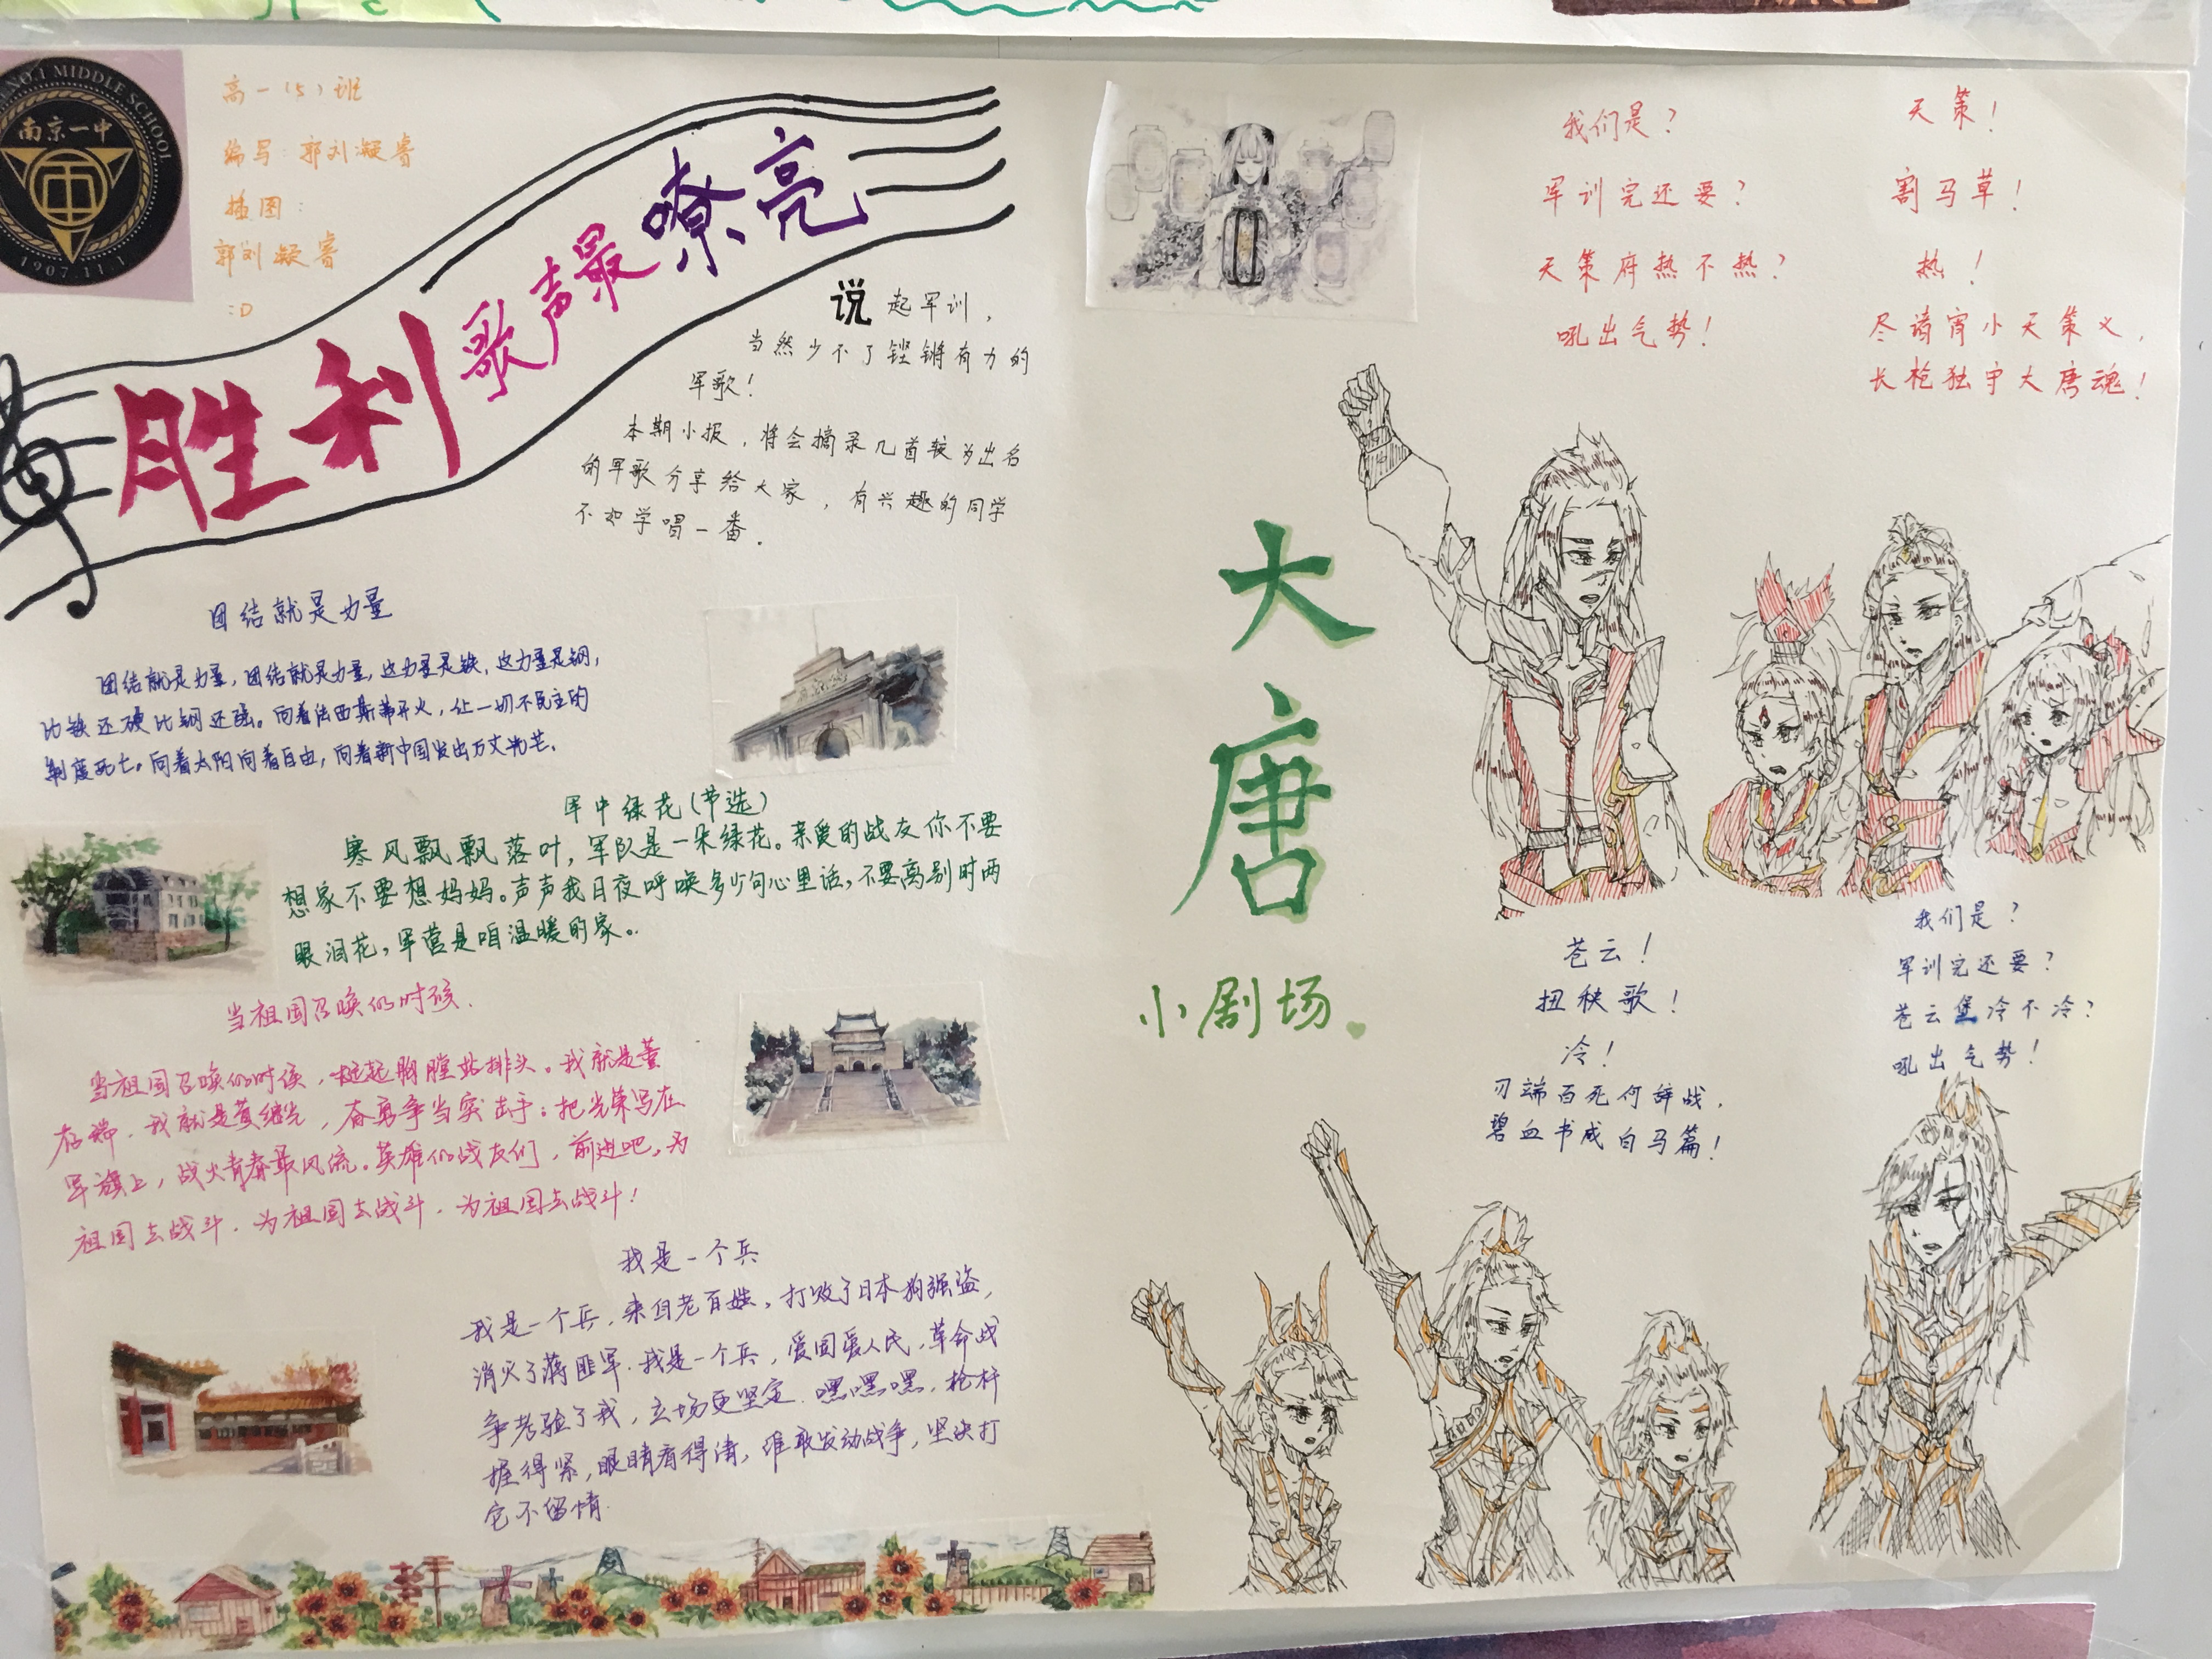 NO.1 MIDDLE SCHOOL
南京一中
1907.11.1
高一(5)班
编写:郭刘凝睿
插图:
郭刘凝睿
:D
胜利歌声最嘹亮
说起军训,
当然少不了铿锵有力的
军歌!
本期小报,将会摘录几首较为出名
的军歌分享给大家,有兴趣的同学
不如学唱一番.
团结就是力量
团结就是力量,团结就是力量,这力量是铁,这力量是钢,
比铁还硬比钢还强。向着法西斯蒂开火,让一切不民主的
制度死亡。向着太阳向着自由,向着新中国发出万丈光芒.
军中绿花(节选)
寒风飘飘落叶,军队是一朵绿花。亲爱的战友你不要
想家不要想妈妈。声声我日夜呼唤多少句心里话,不要离别时两
眼泪花,军营是咱温暖的家。
当祖国召唤的时候.
当祖国召唤的时候,挺起胸膛站排头。我就是董
存瑞.我就是黄继光,奋勇争当突击手;把光荣写在
军旗上,战火青春最风流。英雄的战友们,前进吧,为
祖国去战斗.为祖国去战斗.为祖国去战斗!
我是一个兵
我是一个兵,来自老百姓,打败了日本狗强盗,
消灭了蒋匪军.我是一个兵,爱国爱人民,革命战
争考验了我,立场更坚定.嘿嘿嘿,枪杆
握得紧,眼睛看得清,谁敢发动战争,坚决打
它不留情.
我们是?
军训完还要?
天策府热不热?
吼出气势!
天策!
割马草!
热!
尽诛宵小天策义,
长枪独守大唐魂!
大唐
小剧场
苍云!
扭秧歌!
冷!
刃端百死何辞战,
碧血书成白马篇!
我们是?
军训完还要?
苍云堡冷不冷?
吼出气势!